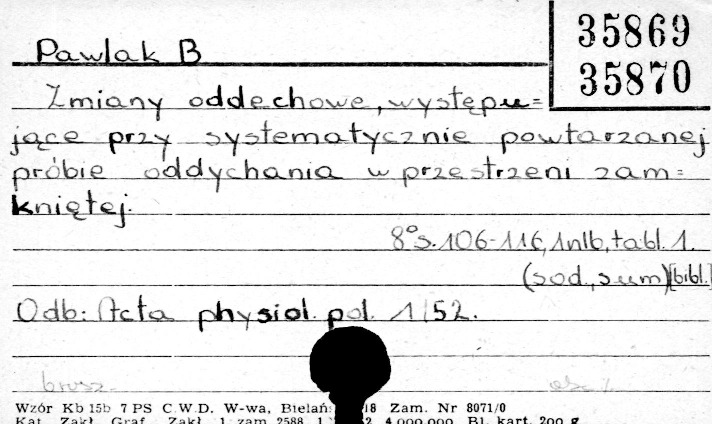 35869
35870
Pawlak B
Zmiany oddechowe, występu=
jące przy systematycznie powtarzanej
próbie oddychania w przestrzeni zam=
kniętej.
8° s. 106-116, 1nlb, tabl. 1.
(sod., sum) [bibl.]
Odb: Acta physiol. pol. 1/52.
brosz.
Wzór Kb 15b 7 PS C.W.D. W-wa, Bielań 18 Zam. Nr 8071/0
Kat. Zakł. Graf. Zakł. 1 zam 2588 1 52 4.000.000 Bl. kart. 200 g